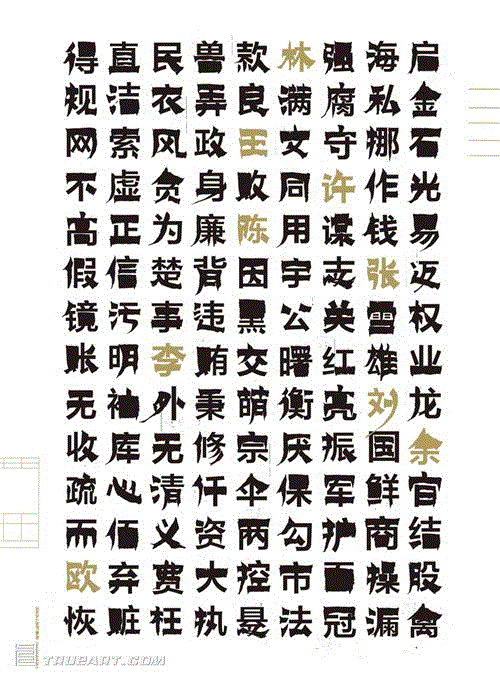 得直民兽款林强海启
规洁衣弄良满腐私金
网索风政王文守挪石
不虚贪身败同许作光
高正为廉陈用谋钱易
假信楚背因宇志张迈
镜污事违黑公关雪权
账明李贿交曙红雄业
无袖外秉萌衡亮刘龙
收库无修宗厌振国余
疏心清仟伞保军鲜官
而佰义资两勾护商结
欧弃费大控市面操股
恢赃枉执悬法冠漏禽
TRUEART.COM